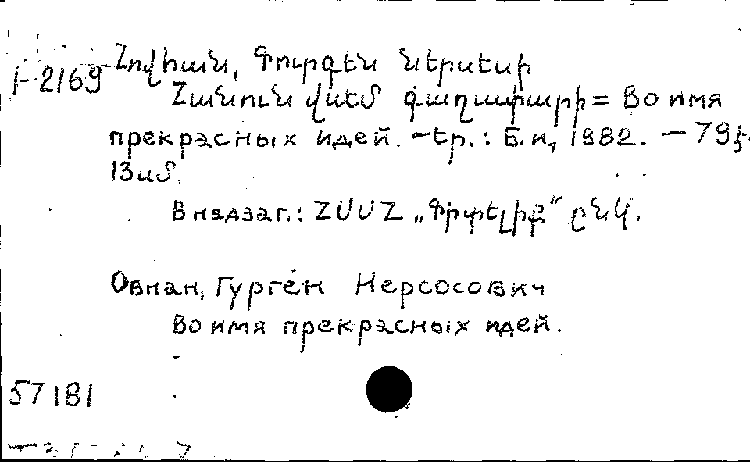 1-2169 Հովիան, Գուրգեն Ներսեսի
Հանուն վսեմ գաղափարի = Во имя
прекрасных идей. – Եր.: Б. и., 1982. — 79 է.
13սմ.
В надзаг.: ՀՍՍՀ „Գիտելիք" ընկ.
Овнан, Гурген Нерсосович
Во имя прекрасных идей.
57181